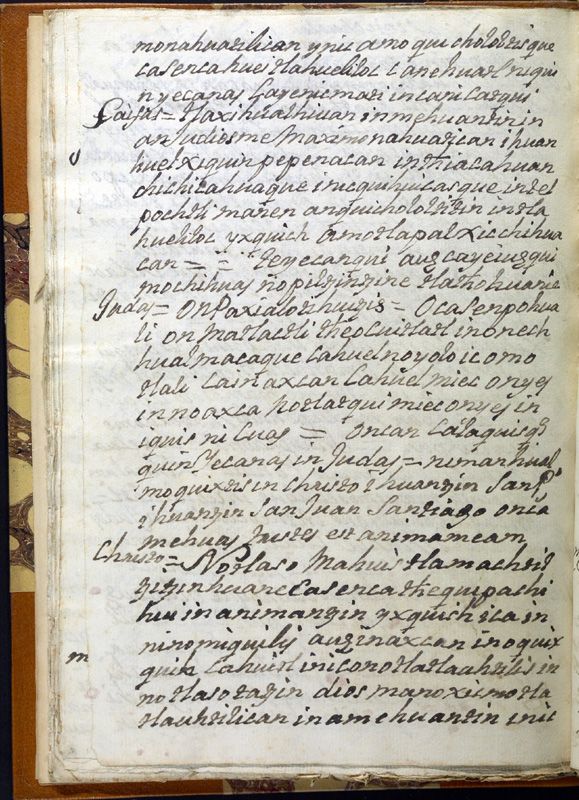 monahuatilican ynic amo qui chololtisque
ca senca huei tlahueliloc Canehuatl niqui
n yecanas Ga yenicmati in canicatqui
Caifas = Tlaxihualhuian inmehuantin in
an Judiosme Maximonahuatican ihuan
huel xiquin pepenacan intiacahuan
chichicahuaque inic quihuicasque in tel
pochtli manen anquichololtitin in tla
hueliloc yxquich amotlapal xicchihua
can = = Te yecanqui auh ca ye iuhqui
mochihuas nopiltzintzine tlathohuanie
Judas = On Paxialotihuis = O ca senpohua
li on Matlactli theocuitlatl in onech
hualmacaque Cahuel noyolo ic omo
tlali Cain axcan Cahuel miec onyes
in no axca hotlatqui miec onyes in
iquis ni Cuas = oncan Calaquisq̃
quin Yecanas in Judas = niman hual
moquixtis in christo ihuantzin San P.º
ihuantzin San Juan Santiago onca
mehuas tristes est anima mea
Christo = Notlaso Mahuis tlamachtil
tzitzinhuane Ca senca thequipachi
hui in animantzin yxquich ica in
ninomiquilis auh in axcan inoquix
quin Cahuitl inic onotlatlauhtilis in
m
notlasotatzin dios manoxicmotla
tlauhtilican in amehuantzin inic